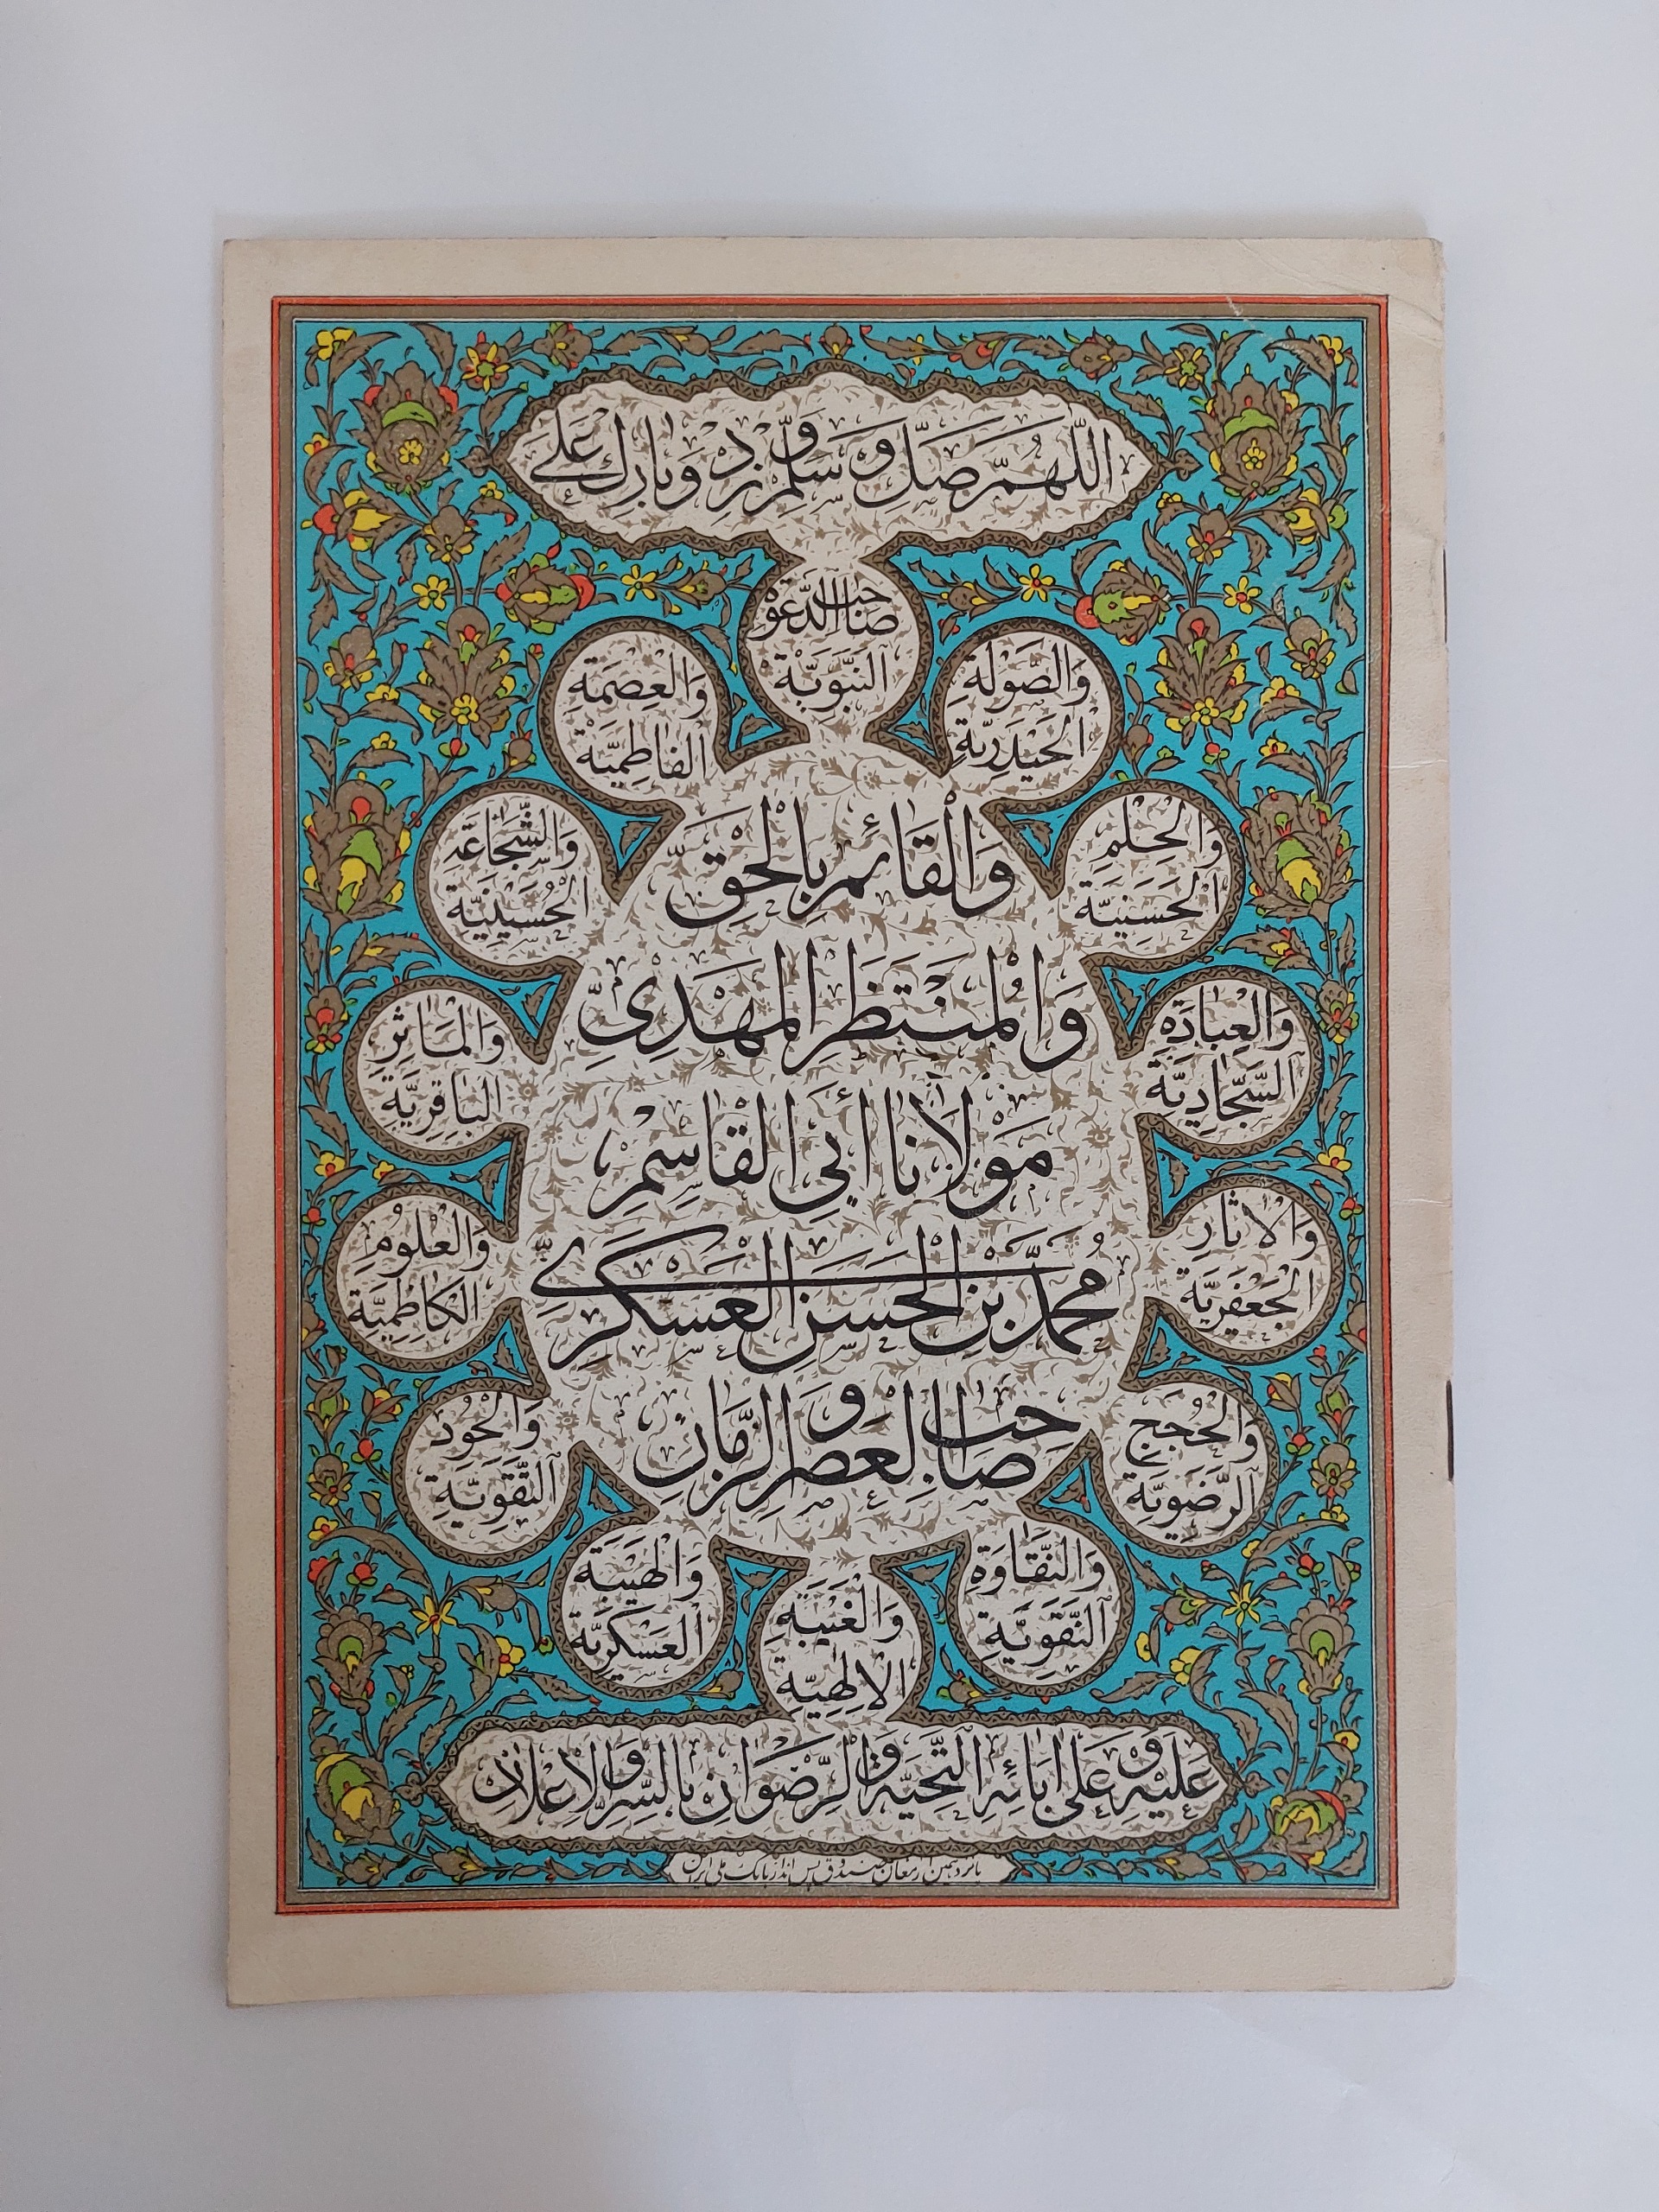 اللّهُمَّ صَلِّ وَسَلِّمْ وَزِدْ وَبارِكْ عَلی
صاحِبِ الدَّعْوَةِ
النَّبَوِیَّةِ
وَالصَّوْلَةِ
الْحَیْدَرِیَّةِ
وَالْعِصْمَةِ
الْفاطِمِیَّةِ
وَالْحِلْمِ
الْحَسَنِیَّةِ
وَالشَّجاعَةِ
الْحُسَیْنِیَّةِ
وَالْعِبادَةِ
السَّجّادِیَّةِ
وَالْمَاٰثِرِ
الْباقِرِیَّةِ
وَالْاٰثارِ
الْجَعْفَرِیَّةِ
وَالْعُلُومِ
الْکاظِمِیَّةِ
وَالْحُجَجِ
الرَّضَوِیَّةِ
وَالْجُودِ
التَّقَوِیَّةِ
وَالنَّقاوَةِ
النَّقَوِیَّةِ
وَالْهَیْبَةِ
الْعَسْکَرِیَّةِ
وَالْغَیْبَةِ
الْاِلٰهِیَّةِ
وَالْقائِمِ بِالْحَقِّ
وَالْمُنْتَظَرِ الْمَهْدِیِّ
مَوْلانا اَبِی الْقاسِمِ
مُحَمَّدِ بْنِ الْحَسَنِ الْعَسْکَرِیِّ
صاحِبِ الْعَصْرِ وَالزَّمانِ
عَلَیْهِ وَعَلی اٰبائِهِ التَّحِیَّةُ وَالرِّضْوانُ بِالسِّرِّ وَالْاِعْلانِ
پانزدهمین ارمغان صندوق پس انداز بانک ملی ایران